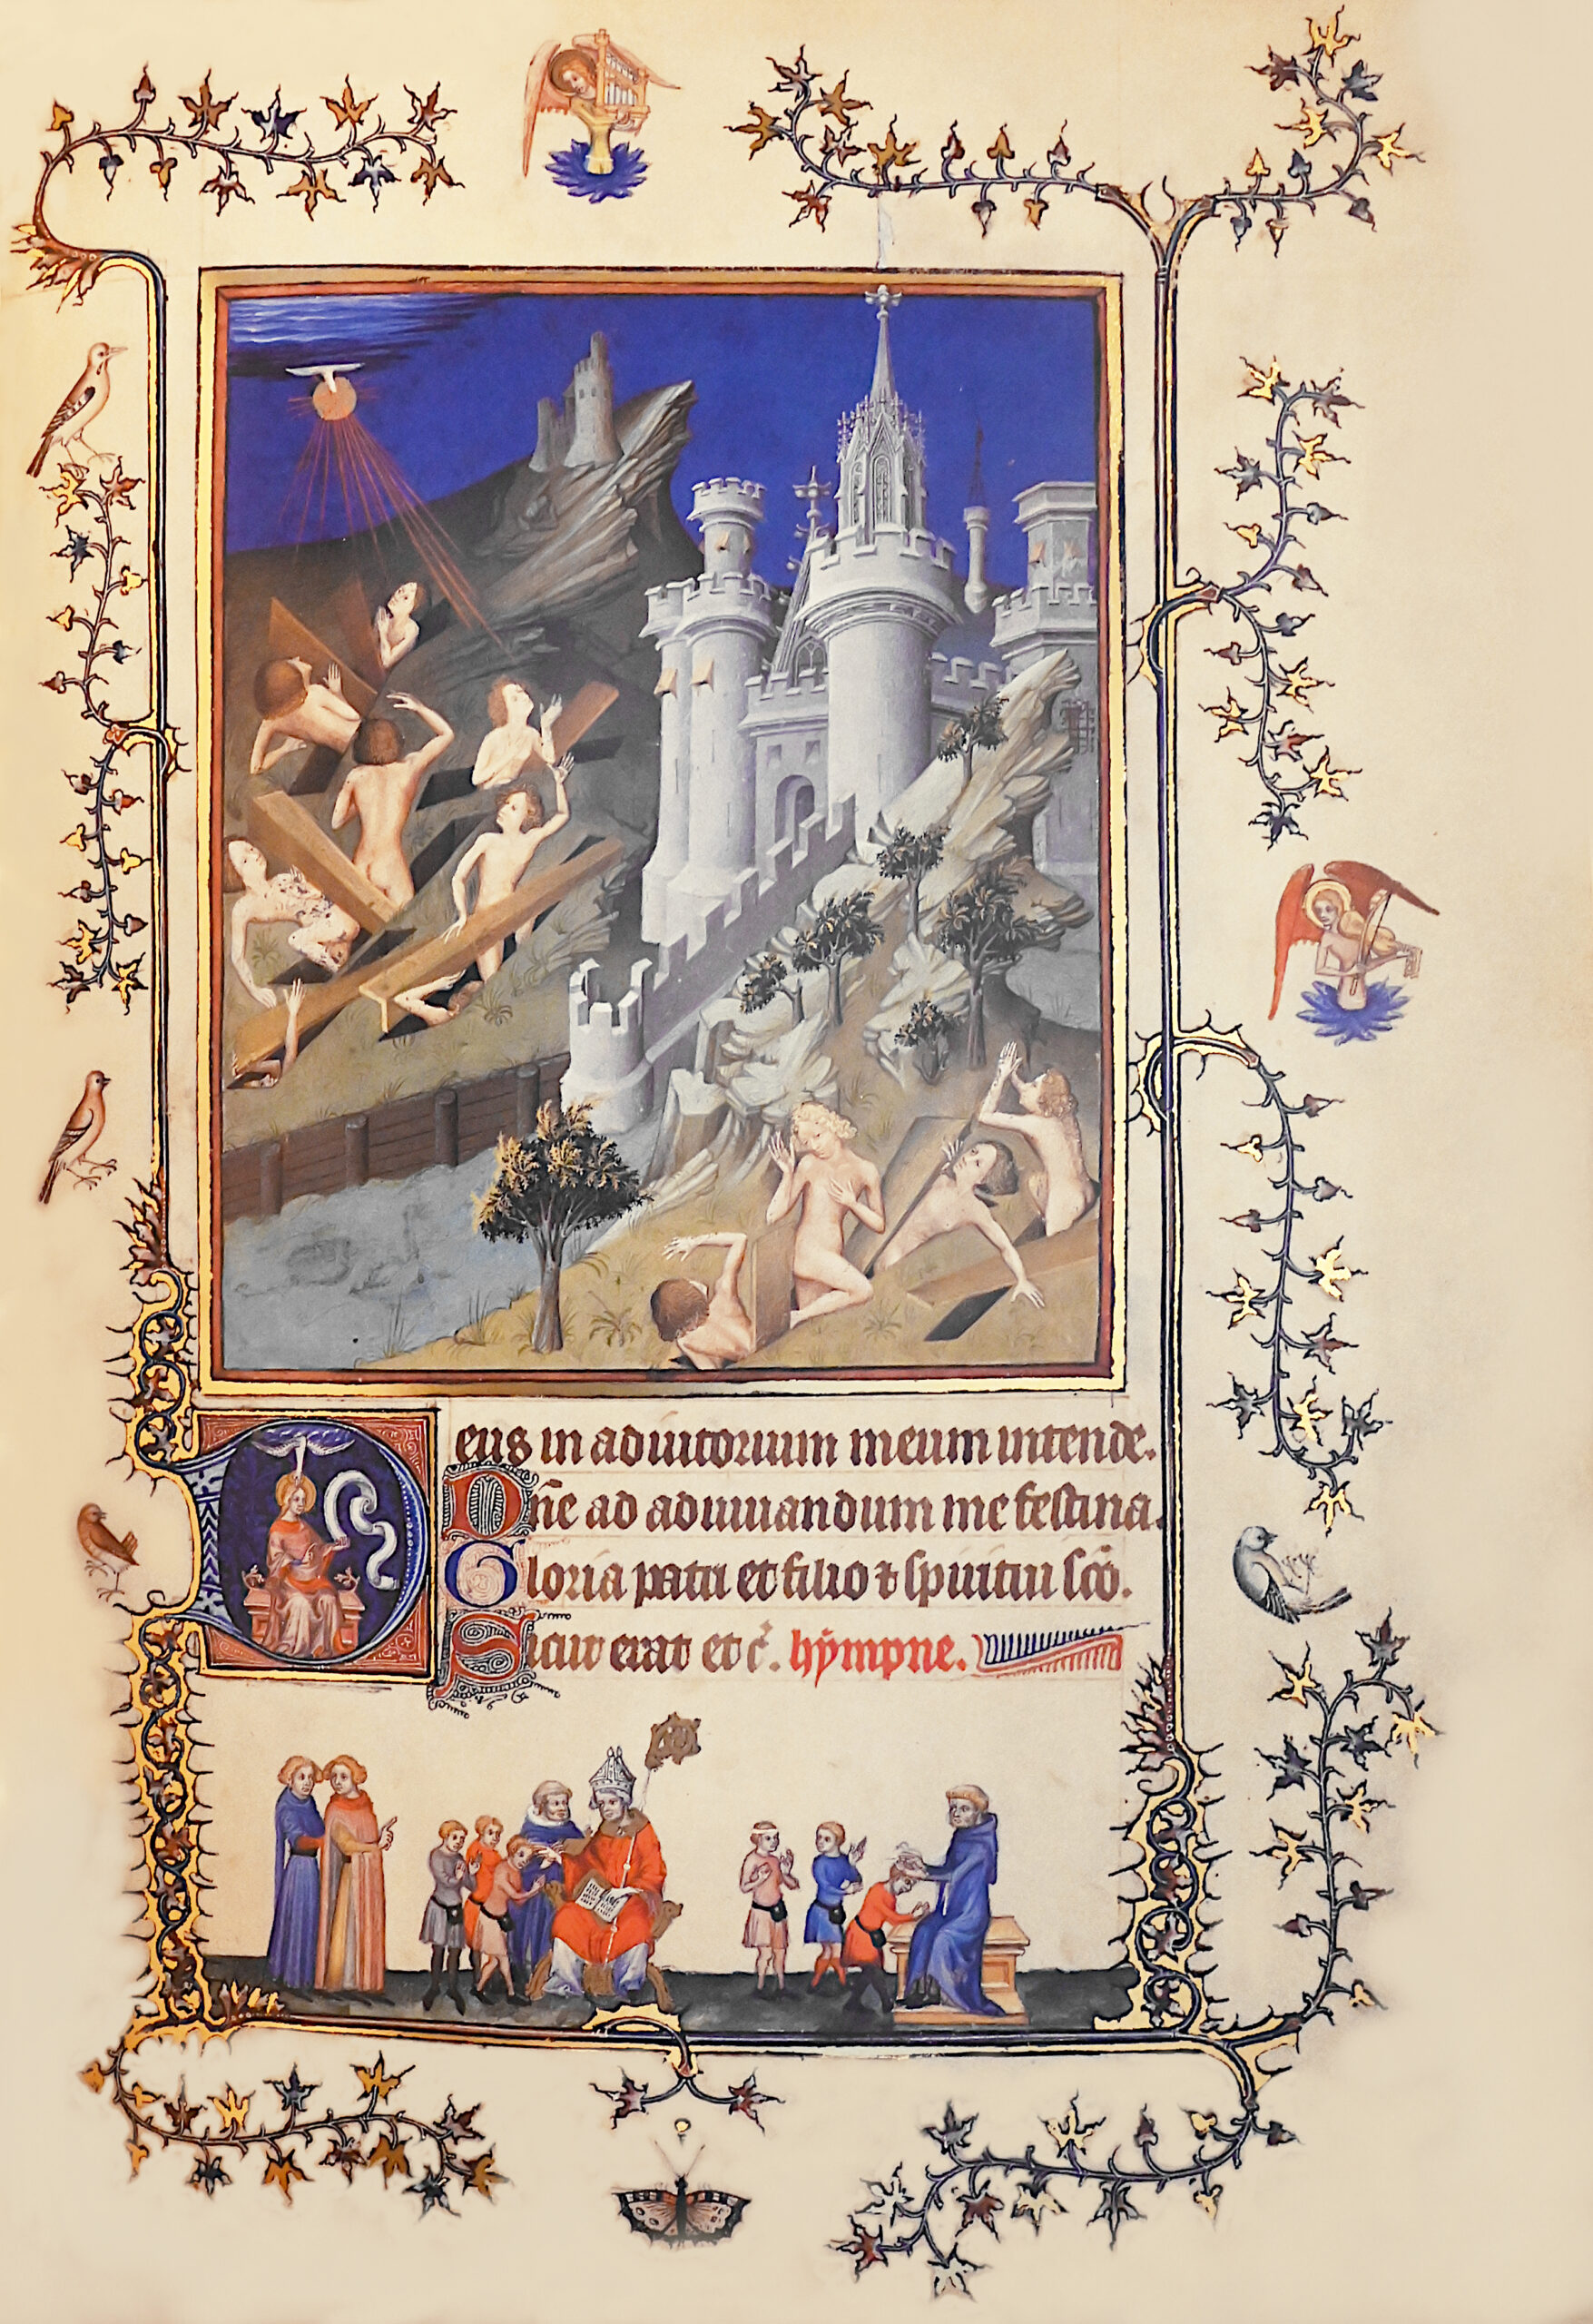 Deus in adiutorium meum intende.
Dn̄e ad adiuuandum me festina.
Gloria patri et filio ⁊ spiritui sc̄o.
Sicut erat et c̄. hympne.